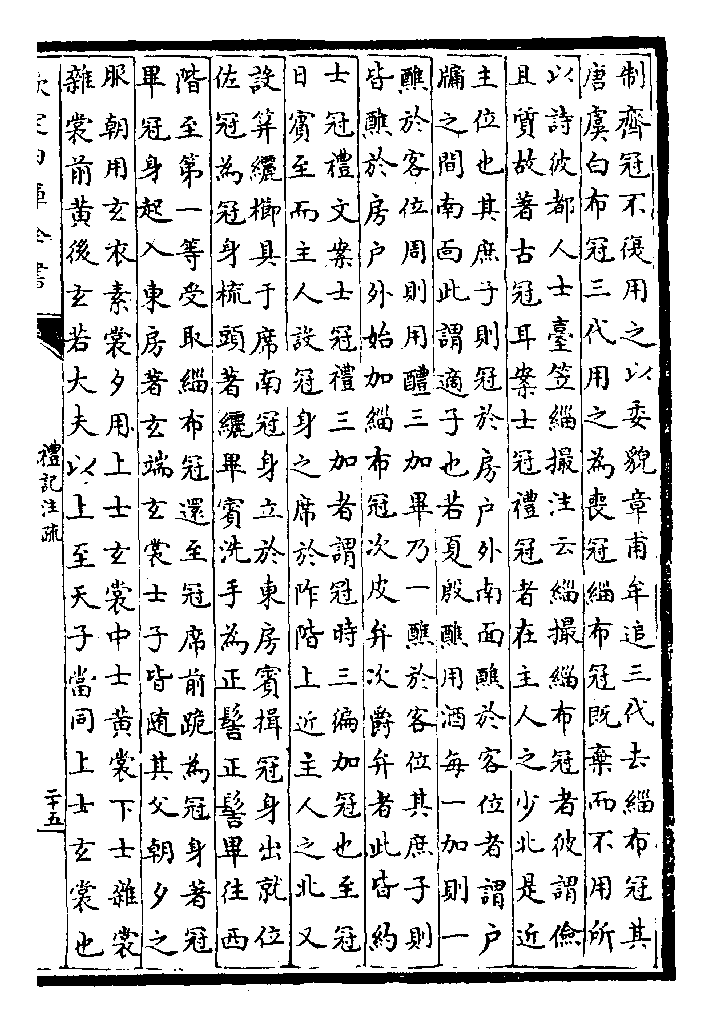 制齊冠不復用之以委貌章甫牟追三代去緇布冠其
唐虞白布冠三代用之為喪冠緇布冠既棄而不用所
以詩彼都人士臺笠緇撮注云緇撮緇布冠者彼謂儉
且質故著古冠耳案士冠禮冠者在主人之少北是近
主位也其庶子則冠於房户外南面醮於客位者謂户
牖之間南面此謂適子也若夏殷醮用酒每一加則一
醮於客位周則用醴三加畢乃一醮於客位其庶子則
皆醮於房户外始加緇布冠次皮弁次爵弁者此皆約
士冠禮文案士冠禮三加者謂冠時三徧加冠也至冠
日賓至而主人設冠身之席於阼階上近主人之北又
設筓纚櫛具于席南冠身立於東房賓揖冠身出就位
佐冠為冠身梳頭著纚畢賓洗手為正髻正髻畢往西
階至第一等受取緇布冠還至冠席前跪為冠身著冠
畢冠身起入東房著玄端玄裳士子皆随其父朝夕之
服朝用玄衣素裳夕用上士玄裳中士黄裳下士雜裳
雜裳前黄後玄若大夫以上至天子當同上士玄裳也
欽定四庫全書
禮記注疏
二十五